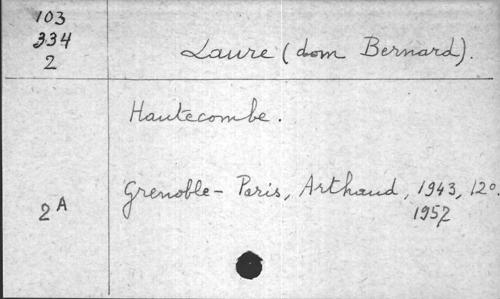 103
334
2
Laure (dom Bernard).
Hautecombe.
Grenoble - Paris, Arthaud, 1943, 12°.
1957
2A